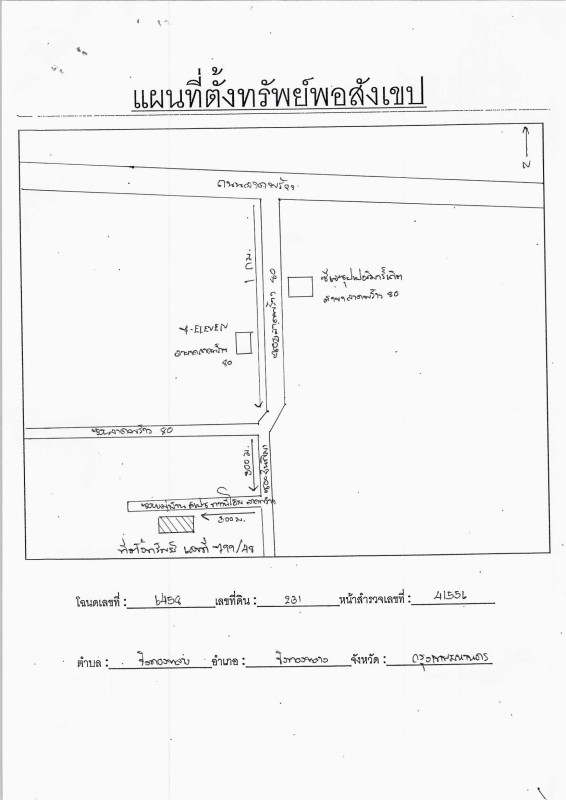 แผนที่ตั้งทรัพย์พอสังเขป
N
ถนนลาดพร้าว
1 กม.
ซอยลาดพร้าว 80
ซุปเปอร์มาร์เก็ต
สาขาลาดพร้าว 80
7-ELEVEN
สาขาลาดพร้าว
80
ซอยลาดพร้าว 80
300 ม.
ซอยหมู่บ้าน
300 ม.
ที่ตั้งทรัพย์ เลขที่ 799/48
โฉนดเลขที่ : 6459 เลขที่ดิน : 231 หน้าสำรวจเลขที่ : 41556
ตำบล : วังทองหลาง อำเภอ : วังทองหลาง จังหวัด : กรุงเทพมหานคร